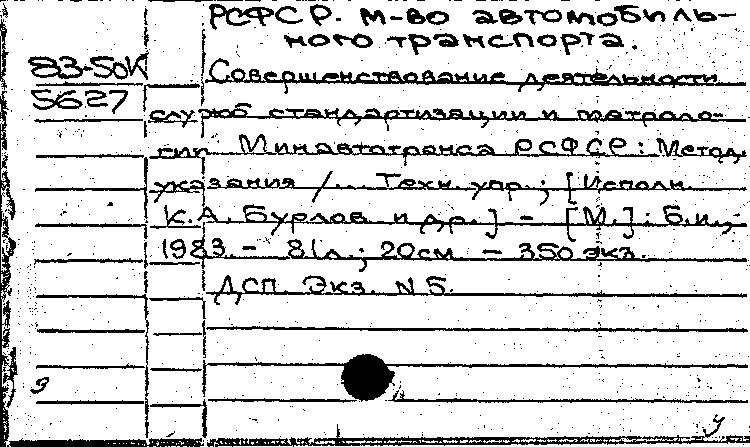 РСФСР. М-во автомобиль-
ного транспорта.
83-50К
5627
Совершенствование деятельности
служб стандартизации и метроло-
гии Минавтотранса РСФСР: Метод.
указания /... Техн. упр.; [Исполн.
К.А. Бурлов и др.] - [М.]: Б.и.,-
1983. - 81л.; 20см. - 350 экз.
ДСП. Экз. N 5.
9
у